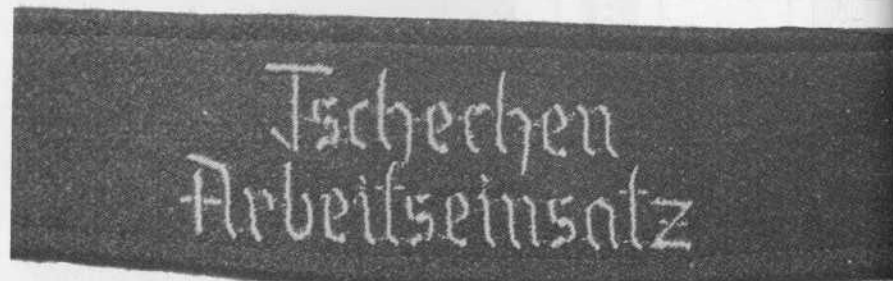 Tschechen
Arbeitseinsatz